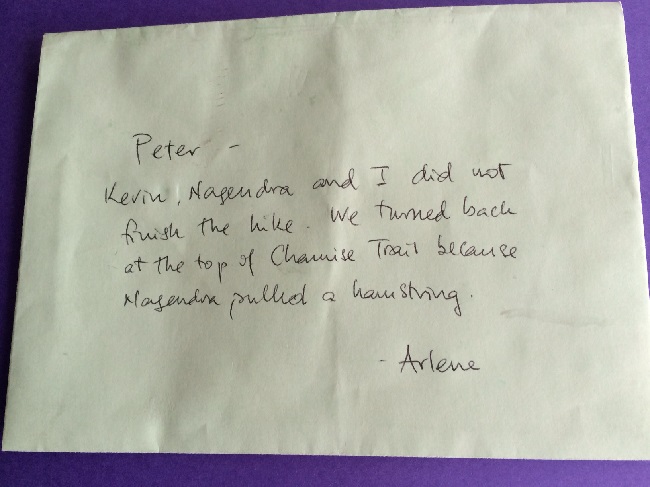 Peter -
Kevin, Nagendra and I did not
finish the hike. We turned back
at the top of Chamise Trail because
Nagendra pulled a hamstring.
- Arlene